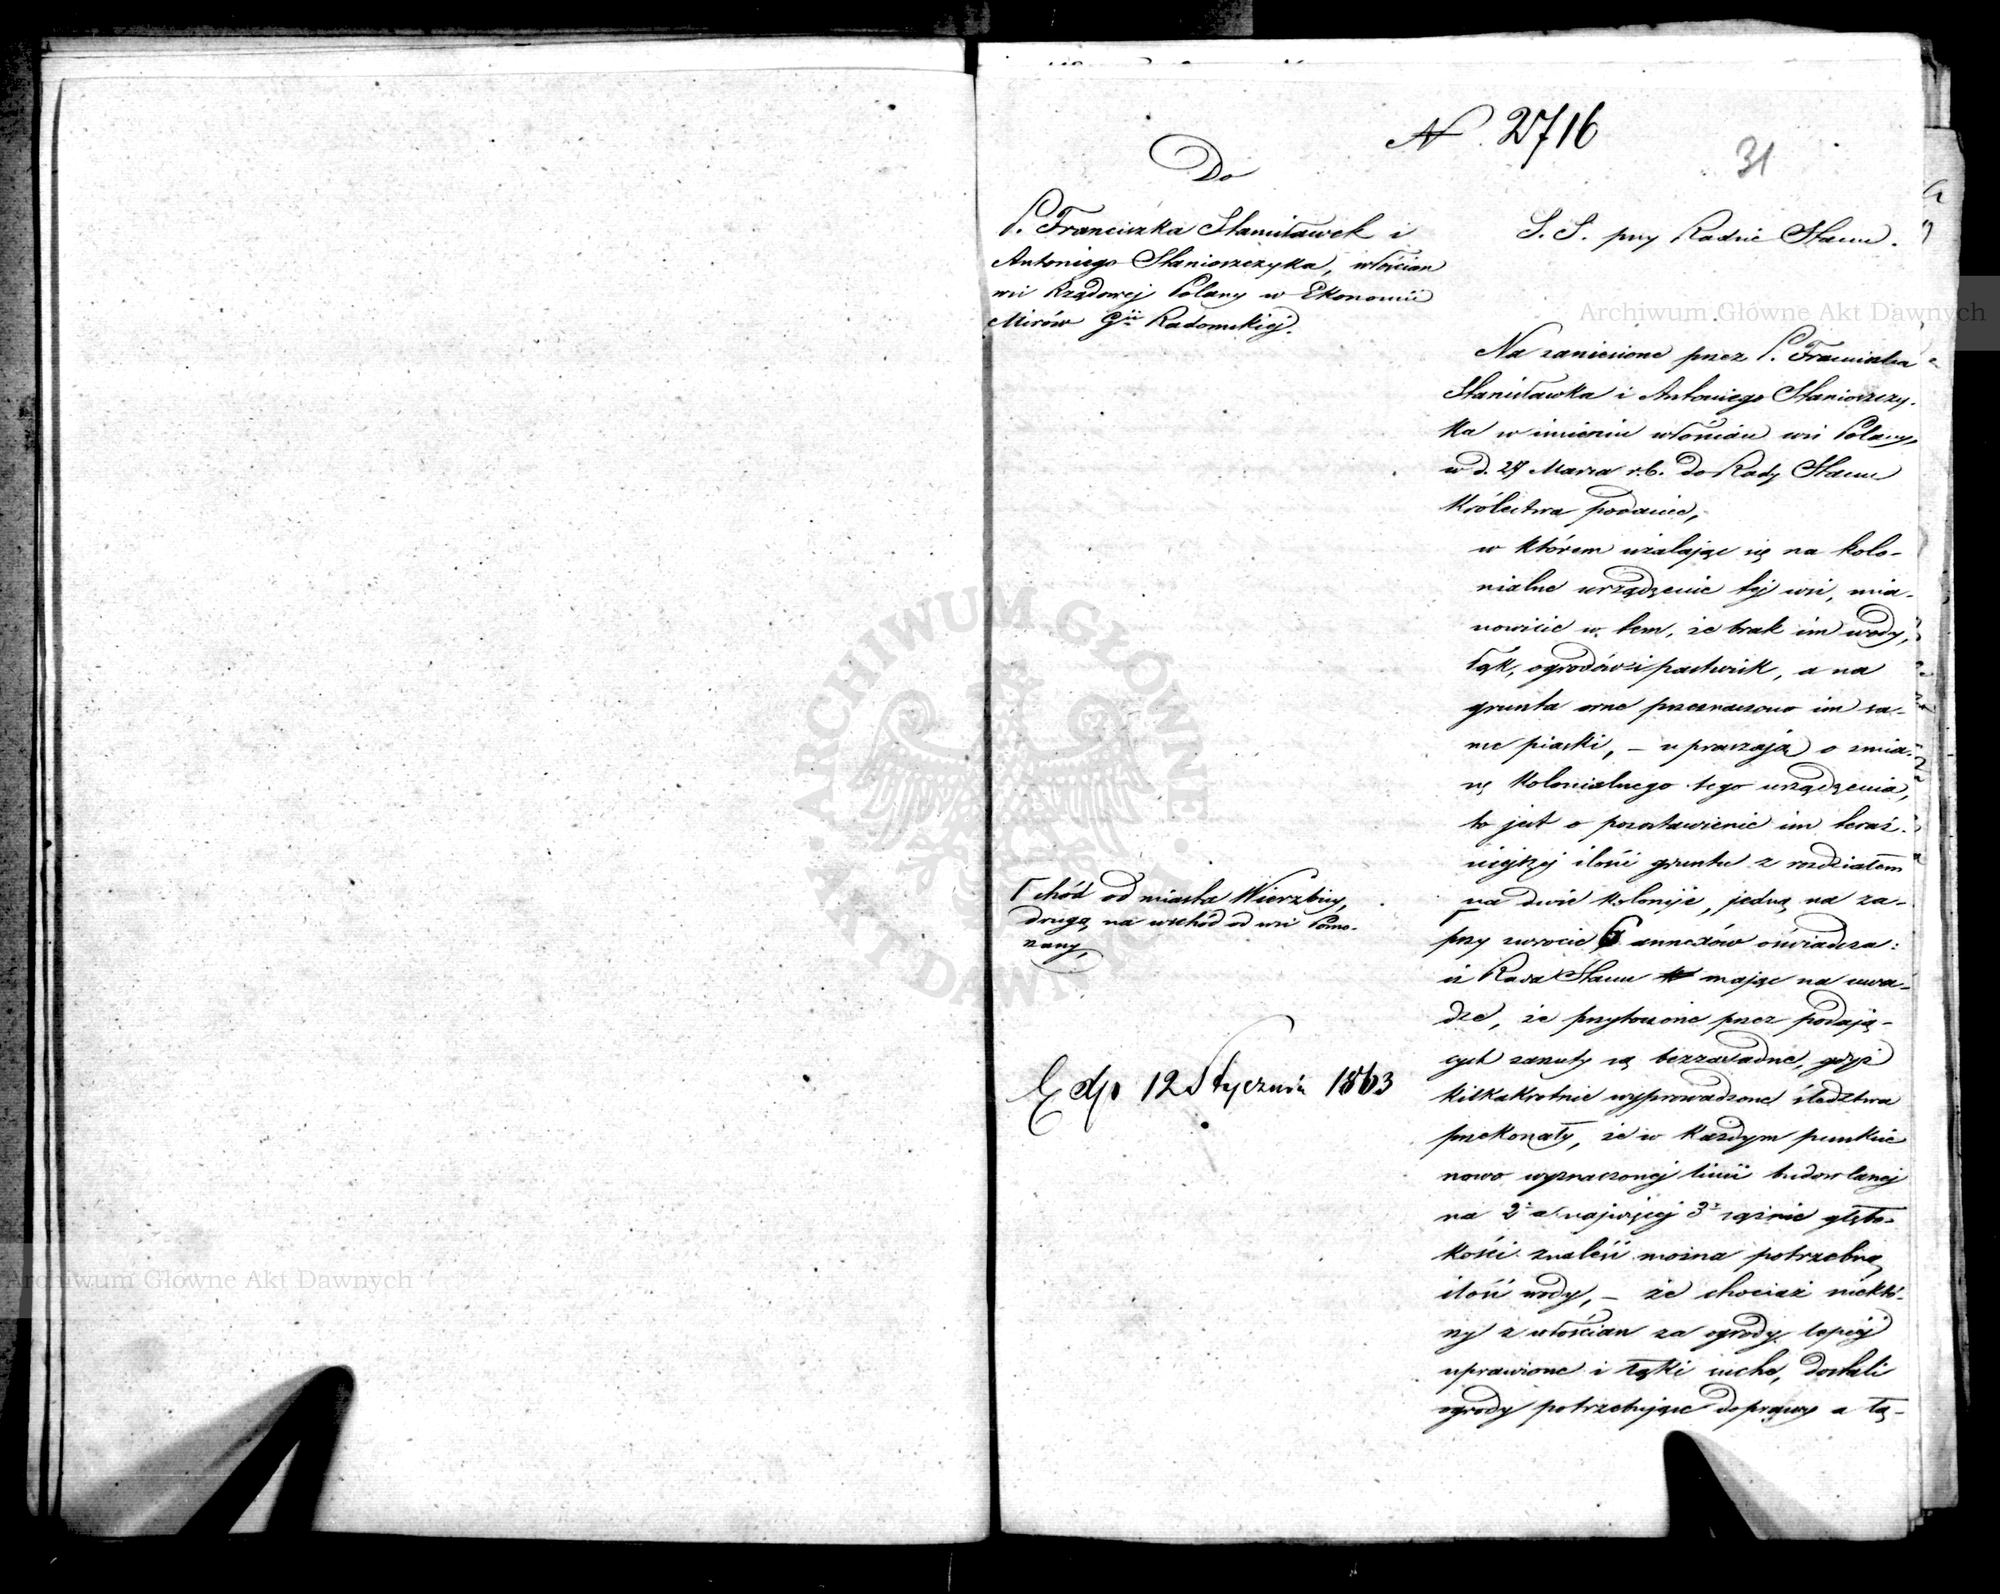 N 2716
31
Do
P. Franciszka Stanisławek i
Antoniego Staniorzczyka, włościan
wsi Rządowej Polany w Ekonomii
Mirów Gii Radomskiej.
S. S. przy Radzie Stanu.
Na zaniesione przez P. Franciszka
Stanisławka i Antoniego Staniorzczy-
ka w imieniu włościan wsi Polany,
w d. 27 Marca r. b. do Rady Stanu
Królestwa podanie,
w którem użalając się na kolo-
nialne urządzenie tej wsi, mia-
nowicie w tem, że brak im wody,
łąk, ogrodów i pastwisk, a na
grunta orne przeznaczono im sa-
me piaski, – upraszają o zmia-
nę kolonialnego tego urządzenia,
to jest o pozostawienie im teraź-
niejszej ilości gruntu z rozdziałem
na dwie kolonije, jedną na za-
Γ chód od miasta Wierzbicy,
drugą na wschód od wsi Pomo-
rzany,
Γ
przy zwrocie 6 annexów oświadcza:
iż Rada Stanu mając na uwa-
dze, że przytoczone przez podają-
cych zarzuty są bezzasadne, gdyż
kilkakrotnie wyprowadzone śledztwa
przekonały, że w każdym punkcie
nowo wyznaczonej linii budowlanej
na 2ch a najwięcej 3ch sążnie głębo-
kości znaleść można potrzebną
ilość wody, – że chociaż niektó-
rzy z włościan za ogrody lepiej
uprawione i łąki suche, dostali
ogrody potrzebujące doprawy a łą-
Exp 12 Stycznia 1863
Archiwum Główne Akt Dawnych
Archiwum Główne Akt Dawnych
ARCHIWUM GŁÓWNE · AKT DAWNYCH ·